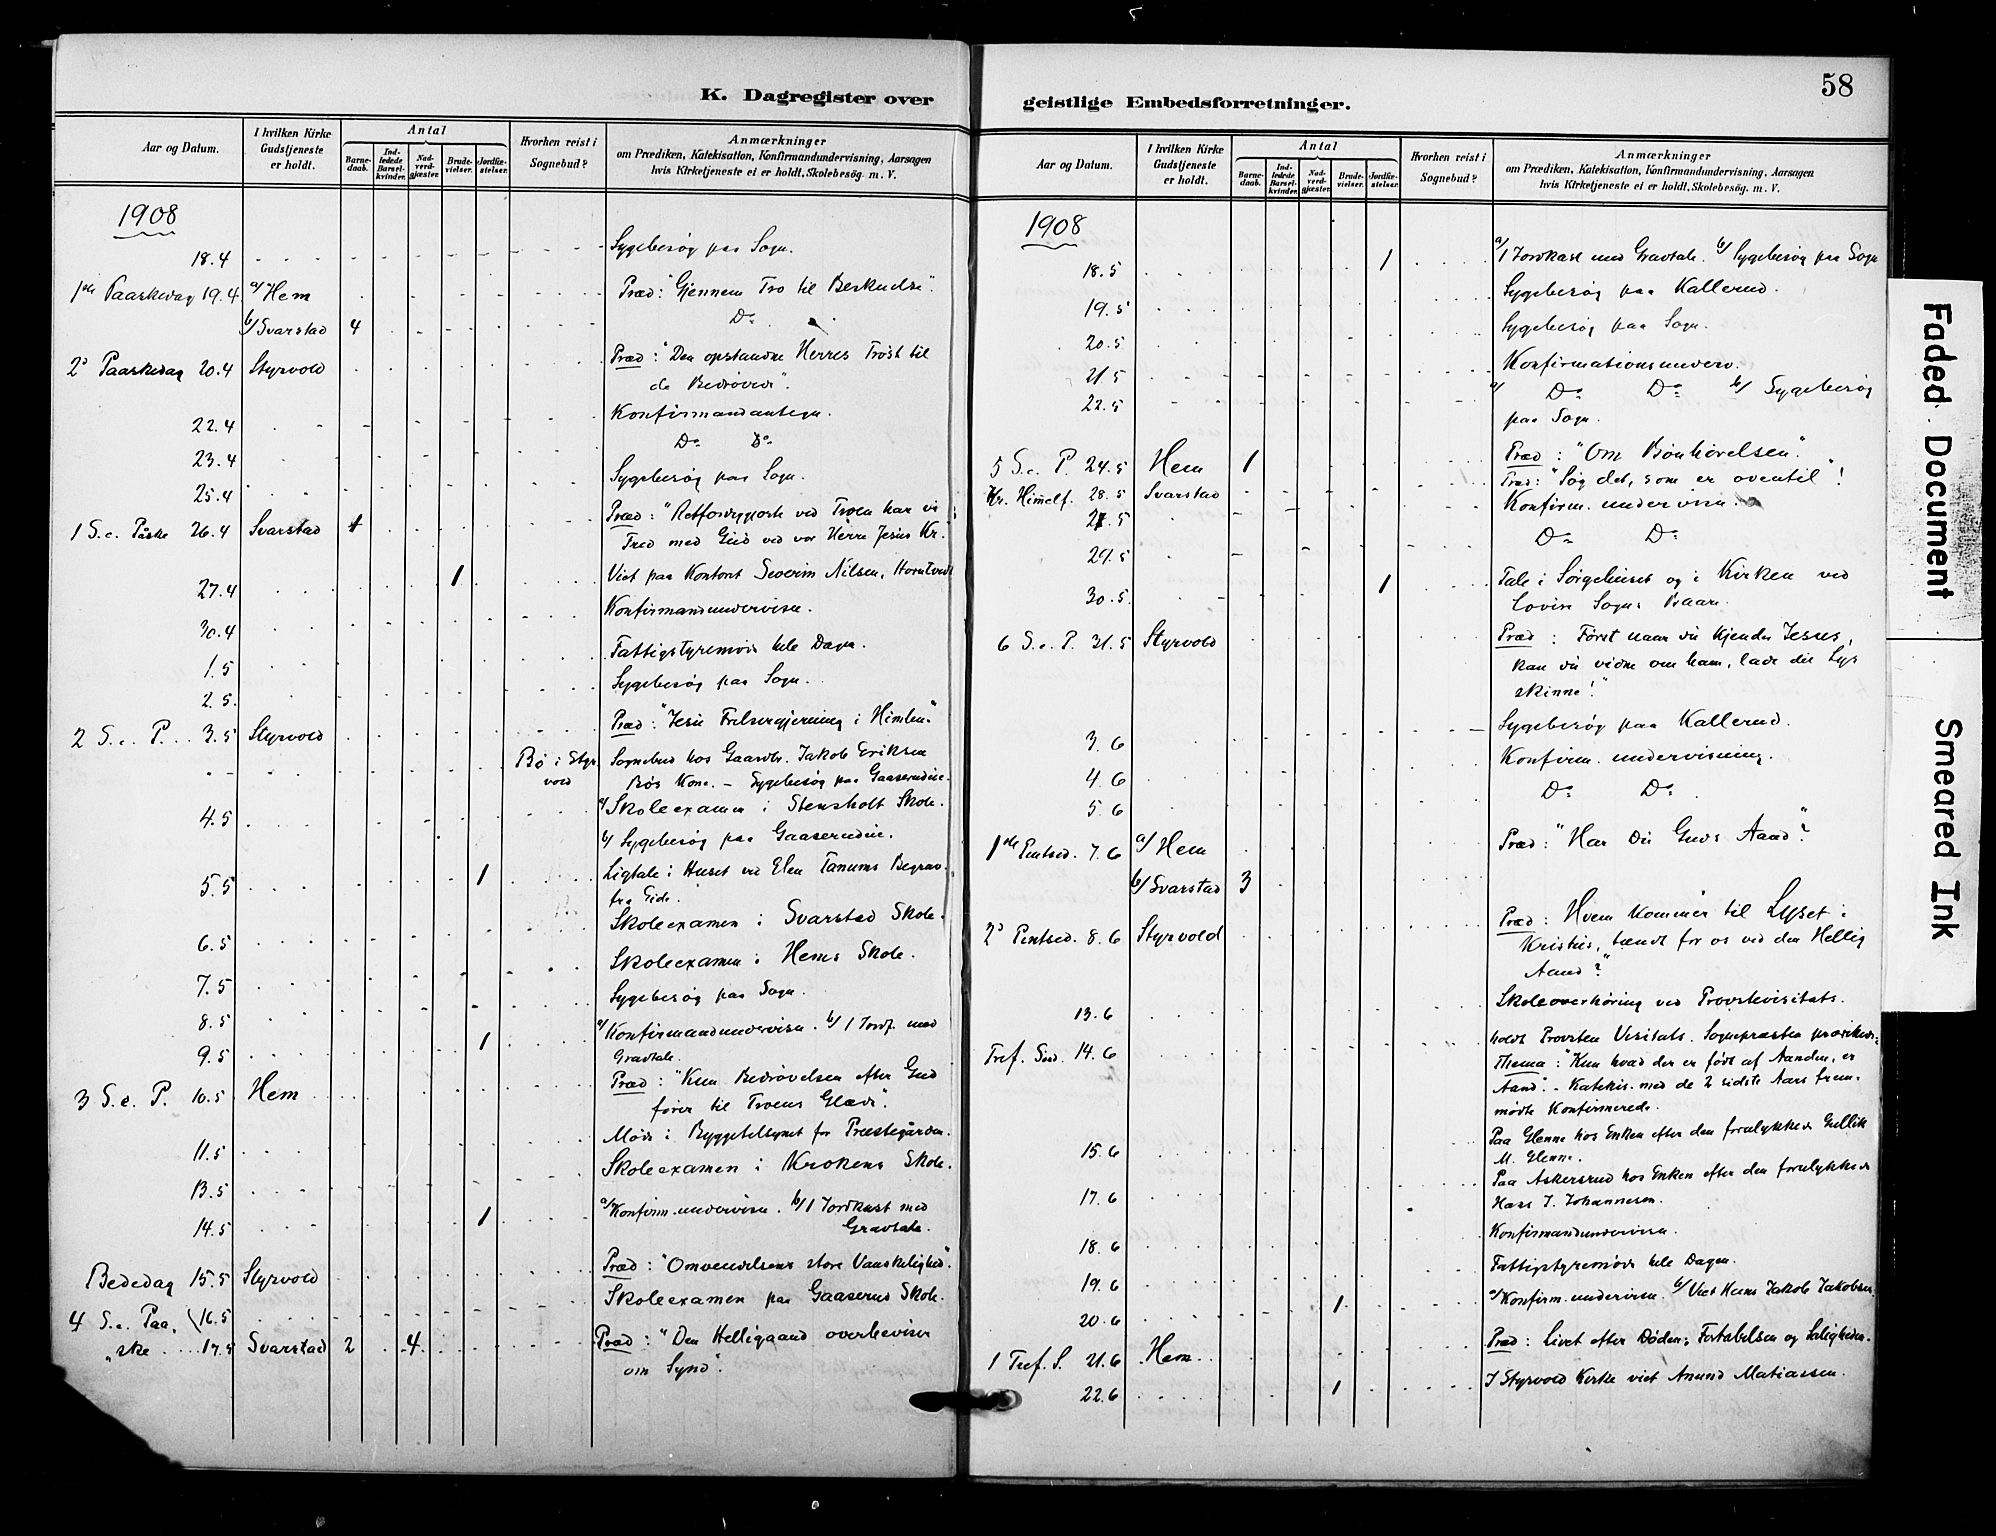 K. Dagregister over
Aar og Datum.
I hvilken Kirke Gudstjeneste er holdt.
Antal
Barne-daab.
Ind-ledede Barsel-kvinder.
Nad-verd-gjæster.
Brude-vielser.
Jordfæ-stelser.
Hvorhen reist i Sognebud?
Anmærkninger
om Prædiken, Katekisation, Konfirmandundervisning, Aarsagen
hvis Kirketjeneste ei er holdt, Skolebesøg. m. V.
1908
18.4 Sygebesøg paa Sogn.
1ste Paaskedag 19.4 a/ Hem Præd: "Gjennem Tro til Beskuelse".
b/ Svarstad 4 Do
2d Paaskedag 20.4 Styrvold Præd: "Den opstandne Herres Trøst til
de Bedrøvede".
22.4 Konfirmandantegn.
23.4 Do Do
25.4 Sygebesøg paa Sogn.
1 S.e. Påske 26.4 Svarstad 1 Præd: "Retfærdiggjorte ved Troen har vi
Fred med Gud ved vor Herre Jesus Kr.
27.4 1 Viet paa Kontoret Severin Nilsen,
30.4 Konfirmandundervisn.
1.5 Fattigstyremøde hele Dagen.
2.5. Sygebesøg paa Sogn.
2 S.e. P. 3.5 Styrvold Præd: "Jesu Frelsergjerning i Himlen."
Bø i Styrvold Sognebud hos Gaardbr. Jakob Eriksen
Bøs Kone. - Sygebesøg paa Gaaserudeie.
4.5 a/ Skoleexamen i Stensholt Skole.
b/ Sygebesøg paa Gaaserudeie.
5.5 1 Ligtale i Huset ved Elen Tanums Begrav.
fra Eide.
6.5 Skoleexamen i Svarstad Skole.
7.5 Skoleexamen i Hems Skole.
8.5 Sygebesøg paa Sogn.
9.5 1 a/ Konfirmandundervisn. b/ 1 Jordf. med
Gravtale.
3 S.e. P. 10.5 Hem Præd: "Kun Bedrøvelsen efter Gud
fører til Troens Glæde".
11.5 Møde i Byggetilsynet for Præstegården.
13.5 Skoleexamen i Krokens Skole.
14.5 1 a/ Konfirm.undervisn. b/ 1 Jordkast med
Gravtale.
Bededag 15.5 Styrvold Præd: "Omvendelsens store Vanskelighed".
16.5 Skoleexamen paa Gaaserud Skole.
4 S.e. Paa,
"ske 17.5 Svarstad 2 4 Præd: "Den Helligaand overbeviser
om Synd".
geistlige Embedsforretninger.
58
Aar og Datum.
I hvilken Kirke Gudstjeneste er holdt.
Antal
Barne-daab.
Ind-ledede Barsel-kvinder.
Nad-verd-gjæster.
Brude-vielser.
Jordfæ-stelser.
Hvorhen reist i Sognebud?
Anmærkninger
om Prædiken, Katekisation, Konfirmandundervisning, Aarsagen
hvis Kirketjeneste ei er holdt, Skolebesøg. m. V.
1908
18.5 1 a/ 1 Jordkast med Gravtale. b/ Sygebesøg paa Sogn
19.5 Sygebesøg paa Kallerud.
20.5 Sygebesøg paa Sogn.
21.5 Konfirmationsunderv.
22.5 a/ Do Do b/ Sygebesøg
paa Sogn.
5 S.e. P. 24.5 Hem 1 Præd: "Om Bønhørelsen".
Kr. Himelf. 28.5 Svarstad Præd: "Søg det, som er oventil"!
27.5 Konfirm. undervisn.
29.5 Do Do
30.5. 1 Tale i Sørgehuset og i Kirken ved
Lovise Sogns Baare.
6 S.e. P. 31.5 Styrvold Præd: Først naar du kjender Jesus,
kan du vidne om ham, lade dit Lys
skinne!"
3.6 Sygebesøg paa Kallerud.
4.6 Konfirm. undervisning.
5.6 Do Do
1ste Pintsed. 7.6 a/ Hem Præd: "Har Du Guds Aand?
b/ Svarstad 3
2d Pintsed. 8.6 Styrvold Præd: Hvem kommer til Lyset i
Kristus, tændt for os ved den Hellig
Aand?"
13.6 Skoleoverhøring ved Provstevisitats.
Tref. Sønd. 14.6 holdt Provsten Visitats. Sognepræsten prædikede:
Thema: "Kun hvad der er født af Aanden, er
Aand". - Katekis. med de 2 sidste Aars frem-
mødte Konfirmerede.
15.6 Paa Glenne hos Enken efter den forulykkede Gullik
M. Glenne.
17.6 Paa Askersrud hos Enken efter den forulykkede
Hans J. Johannesen.
18.6 Konfirmandundervisn.
19.6 Fattigstyremøde hele Dagen.
20.6 1 a/ Konfirm.undervisn. b/ Viet Hans Jakob Jakobsen
1 Tref. S. 21.6 Hem Præd: Livet efter Døden; Fortabelsen og Saligheden.
22.6 1 I Styrvold Kirke viet Anund Matiassen.
Faded Document
Smeared Ink